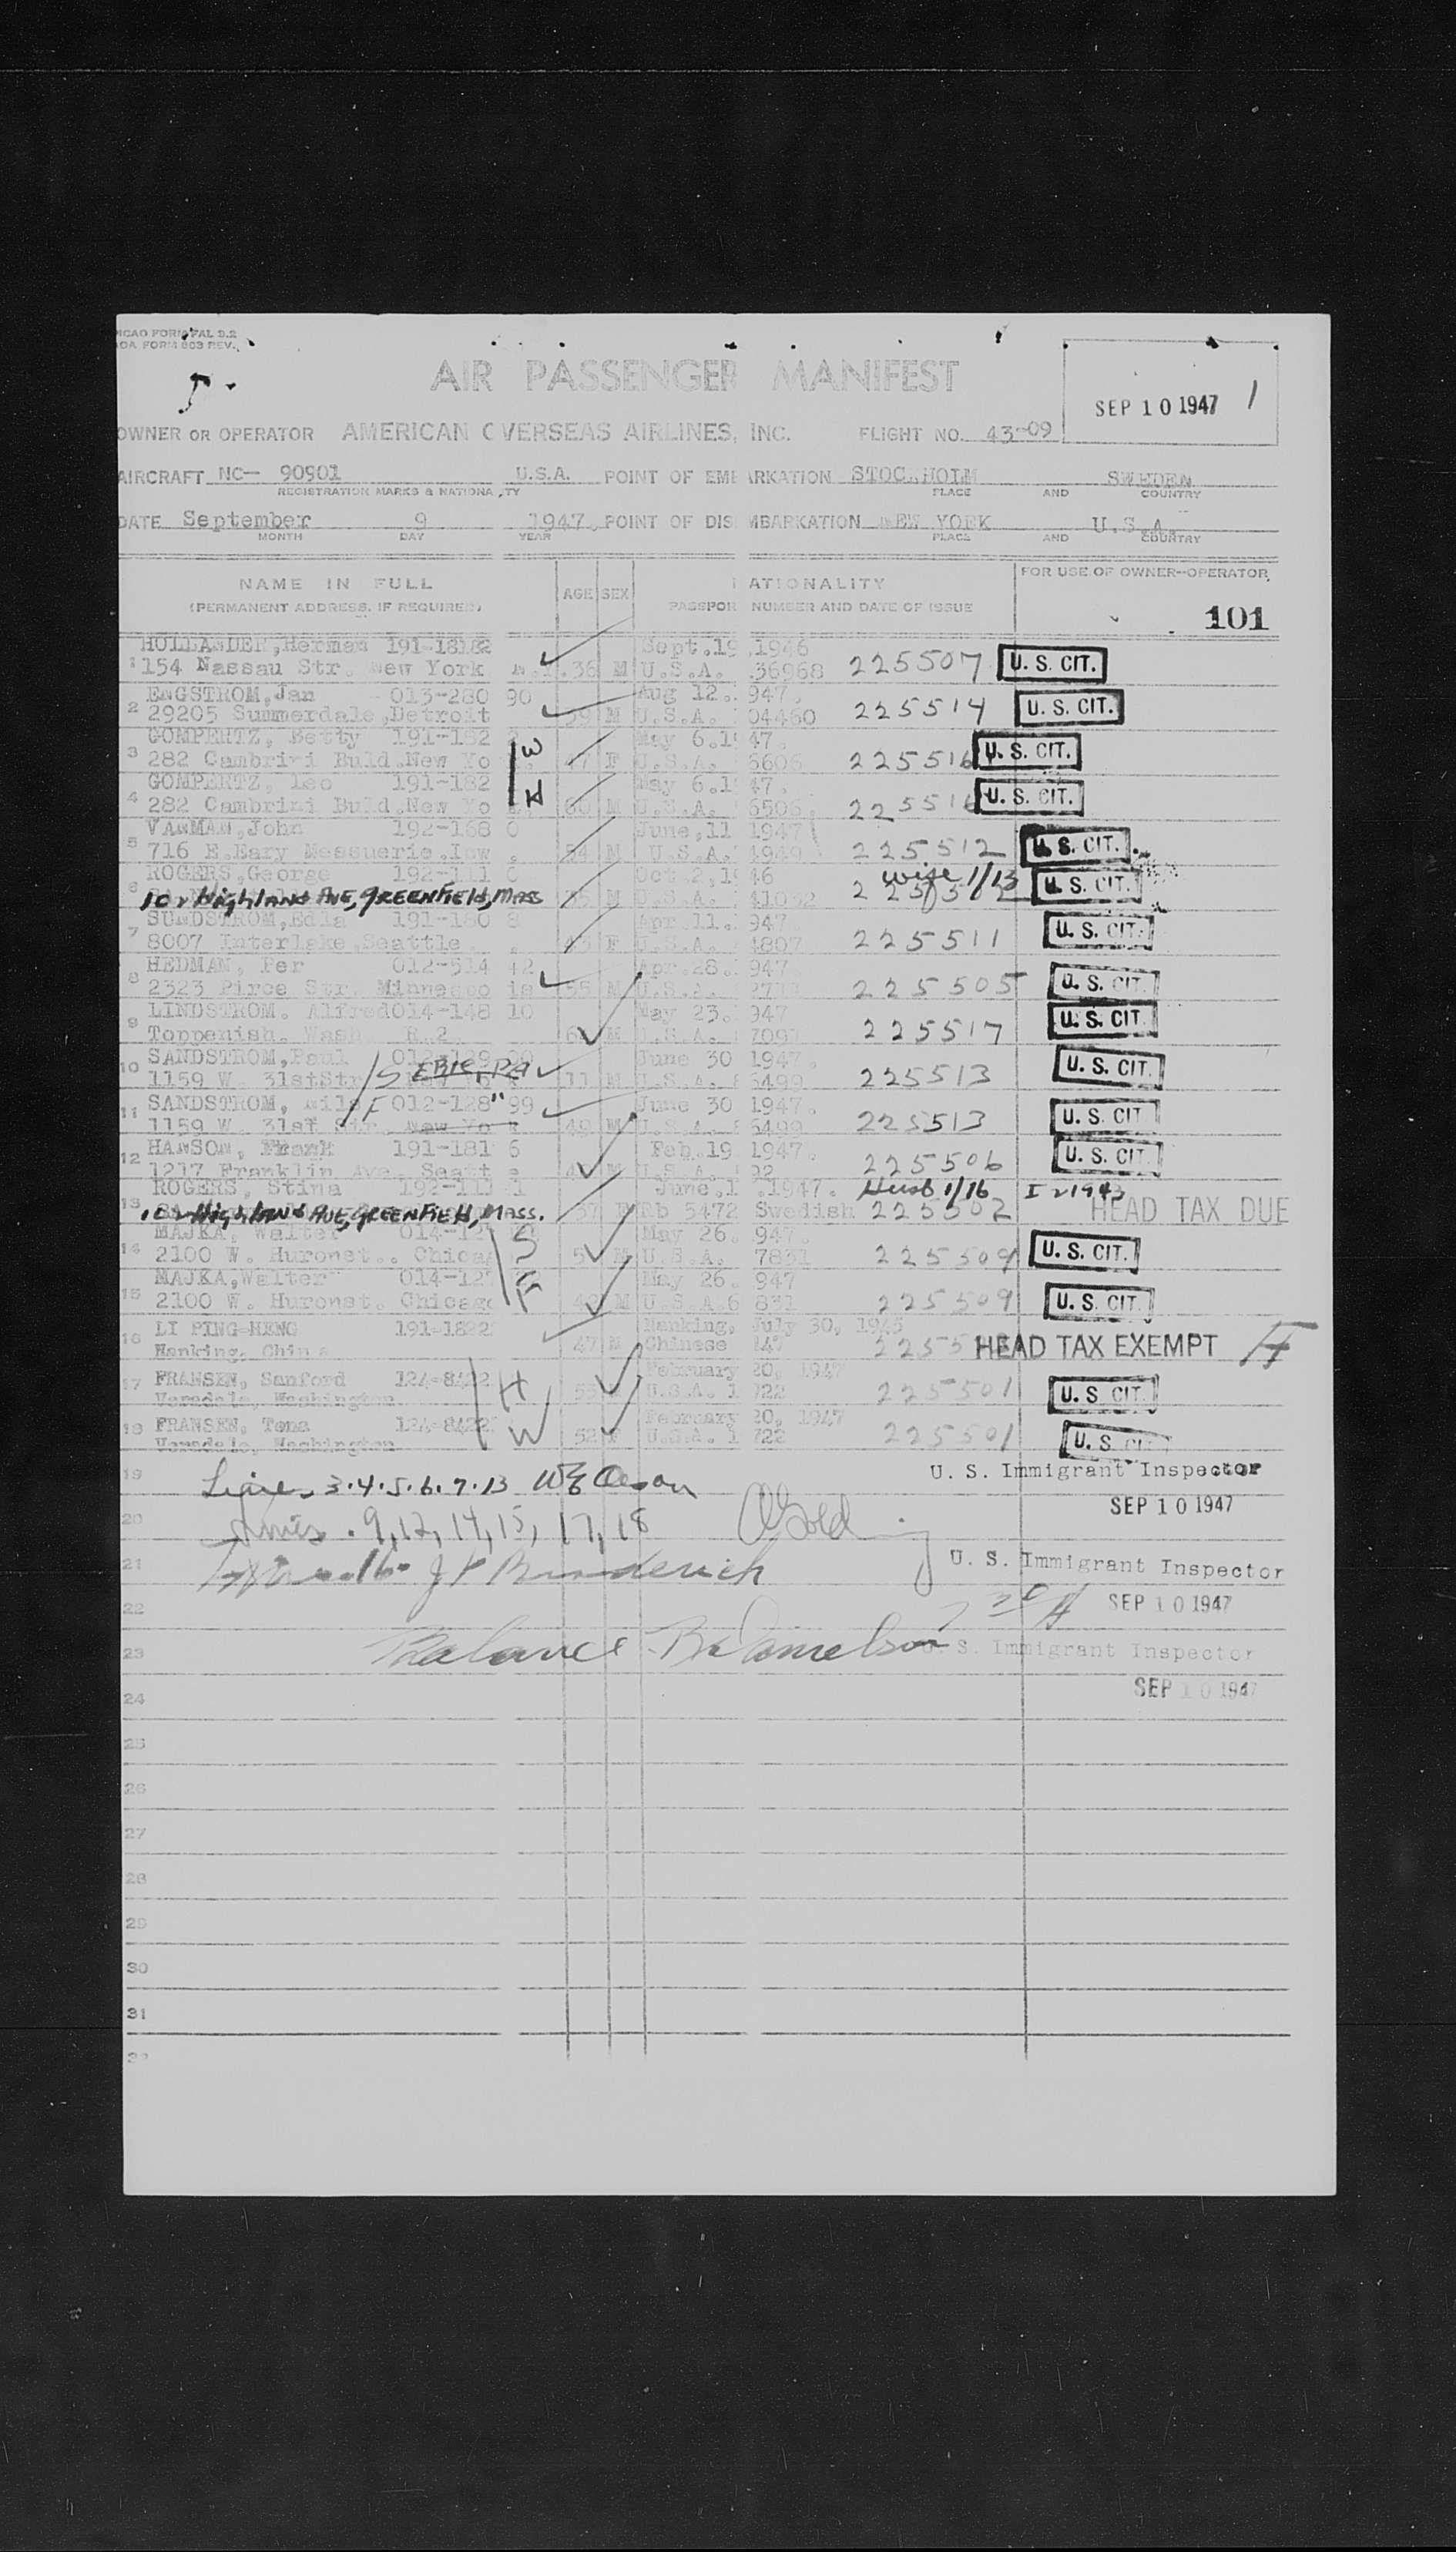 ICAO FORM FAL 3.2
AOA FORM 803 REV.
AIR PASSENGER MANIFEST
SEP 10 1947 1
OWNER OR OPERATOR AMERICAN OVERSEAS AIRLINES, INC. FLIGHT NO. 43-09
AIRCRAFT NC- 90901 U.S.A. POINT OF EMBARKATION STOCKHOLM SWEDEN
REGISTRATION MARKS & NATIONALITY PLACE AND COUNTRY
DATE September 9 1947. POINT OF DISEMBARKATION NEW YORK U.S.A.
MONTH DAY YEAR PLACE AND COUNTRY
NAME IN FULL AGE SEX NATIONALITY FOR USE OF OWNER-OPERATOR
(PERMANENT ADDRESS, IF REQUIRED) PASSPORT NUMBER AND DATE OF ISSUE 101
HOLLANDEN, Herman 191-18182 Sept.19 1946
1 154 Nassau Str. New York N.Y. 36 M U.S.A. 36968 225507 U. S. CIT.
ENGSTROM, Jan 013-280 90 Aug 12. 947.
2 29205 Summerdale, Detroit 59 M U.S.A. 04460 225514 U. S. CIT.
GOMPERTZ, Betty 191-182 W May 6.1 47.
3 282 Cambrini Buld. New Yo 47 F U.S.A. 6606 225516 U. S. CIT.
GOMPERTZ, Leo 191-182 H May 6.1 47.
4 282 Cambrini Buld. New Yo 60 M U.S.A. 6506. 225516 U. S. CIT.
VANMAN, John 192-168 0 June, 11 1947
5 716 E. 54 M U.S.A. 4949 225512 U. S. CIT.
ROGERS, George 192-111 Oct.2, 19 46 wife 1/13
6 102 HighLAND AVE, GREENFIELD, MASS 55 M U.S.A. 41032 U. S. CIT.
SUNDSTROM, Edla 191-180 8 Apr.11. 947.
7 8007 Interlake, Seattle. 45 F U.S.A. 4807 225511 U. S. CIT.
HEDMAN, Per 012-514 42 Apr.28. 947
8 2323 Pirce Str. Minneapo is 55 M U.S.A. 225505 U. S. CIT.
LINDSTROM. Alfred 014-148 10 May 23. 947
9 Toppenish. Wash. R.2 M U.S.A. 709 225517 U. S. CIT.
SANDSTROM, Paul 012-129 June 30 1947.
10 1159 W. 31stStr S ERIE, PA 11 M U.S.A. 6499 225513 U. S. CIT.
SANDSTROM, Nils F 012-128 " 99 June 30 1947.
11 1159 W. 31st Str. New Yo k 49 M U.S.A. 6499 225513 U. S. CIT
HANSON, Frank 191-181 6 Feb.19 1947.
12 1217 Franklin Ave. Seatt e M U.S.A. 225506 U. S. CIT
ROGERS, Stina 192-111 1 June.1 .1947. Husb 1/16
13 102 HighLAND AVE, GREENFIELD, MASS. 37 F Rb 5472 Swedish 225502 HEAD TAX DUE
MAJKA, Walter 014-12 S May 26. 947.
14 2100 W. Huronst.. Chicag M U.S.A. 7831 225509 U. S. CIT.
MAJKA, Walter 014-127 F May 26. 947
15 2100 W. Huronst. Chicago M U.S.A.6 831 225509 U. S. CIT.
LI PING-HENG 191-1822 Nanking, July 30, 1945
16 Nanking, China 47 M Chinese 147 HEAD TAX EXEMPT
17 FRANSEN, Sanford 124-8422 H February 20, 1947
Veradale, Washington 55 U.S.A. 1 722 225501 U. S CIT.
18 FRANSEN, Toma 124-8422 W February 20, 1947
Veradale, Washington 52 F U.S.A. 1 722 225501 U. S CIT
19 Lines 3.4.5.6.7.13 U. S. Immigrant Inspector
20 Lines . 9, 12, 14, 15, 17, 18 SEP 10 1947
21 16 U. S. Immigrant Inspector
22 SEP 10 1947
23 Balance U. S. Immigrant Inspector
24 SEP 10 1947
25
26
27
28
29
30
31
32